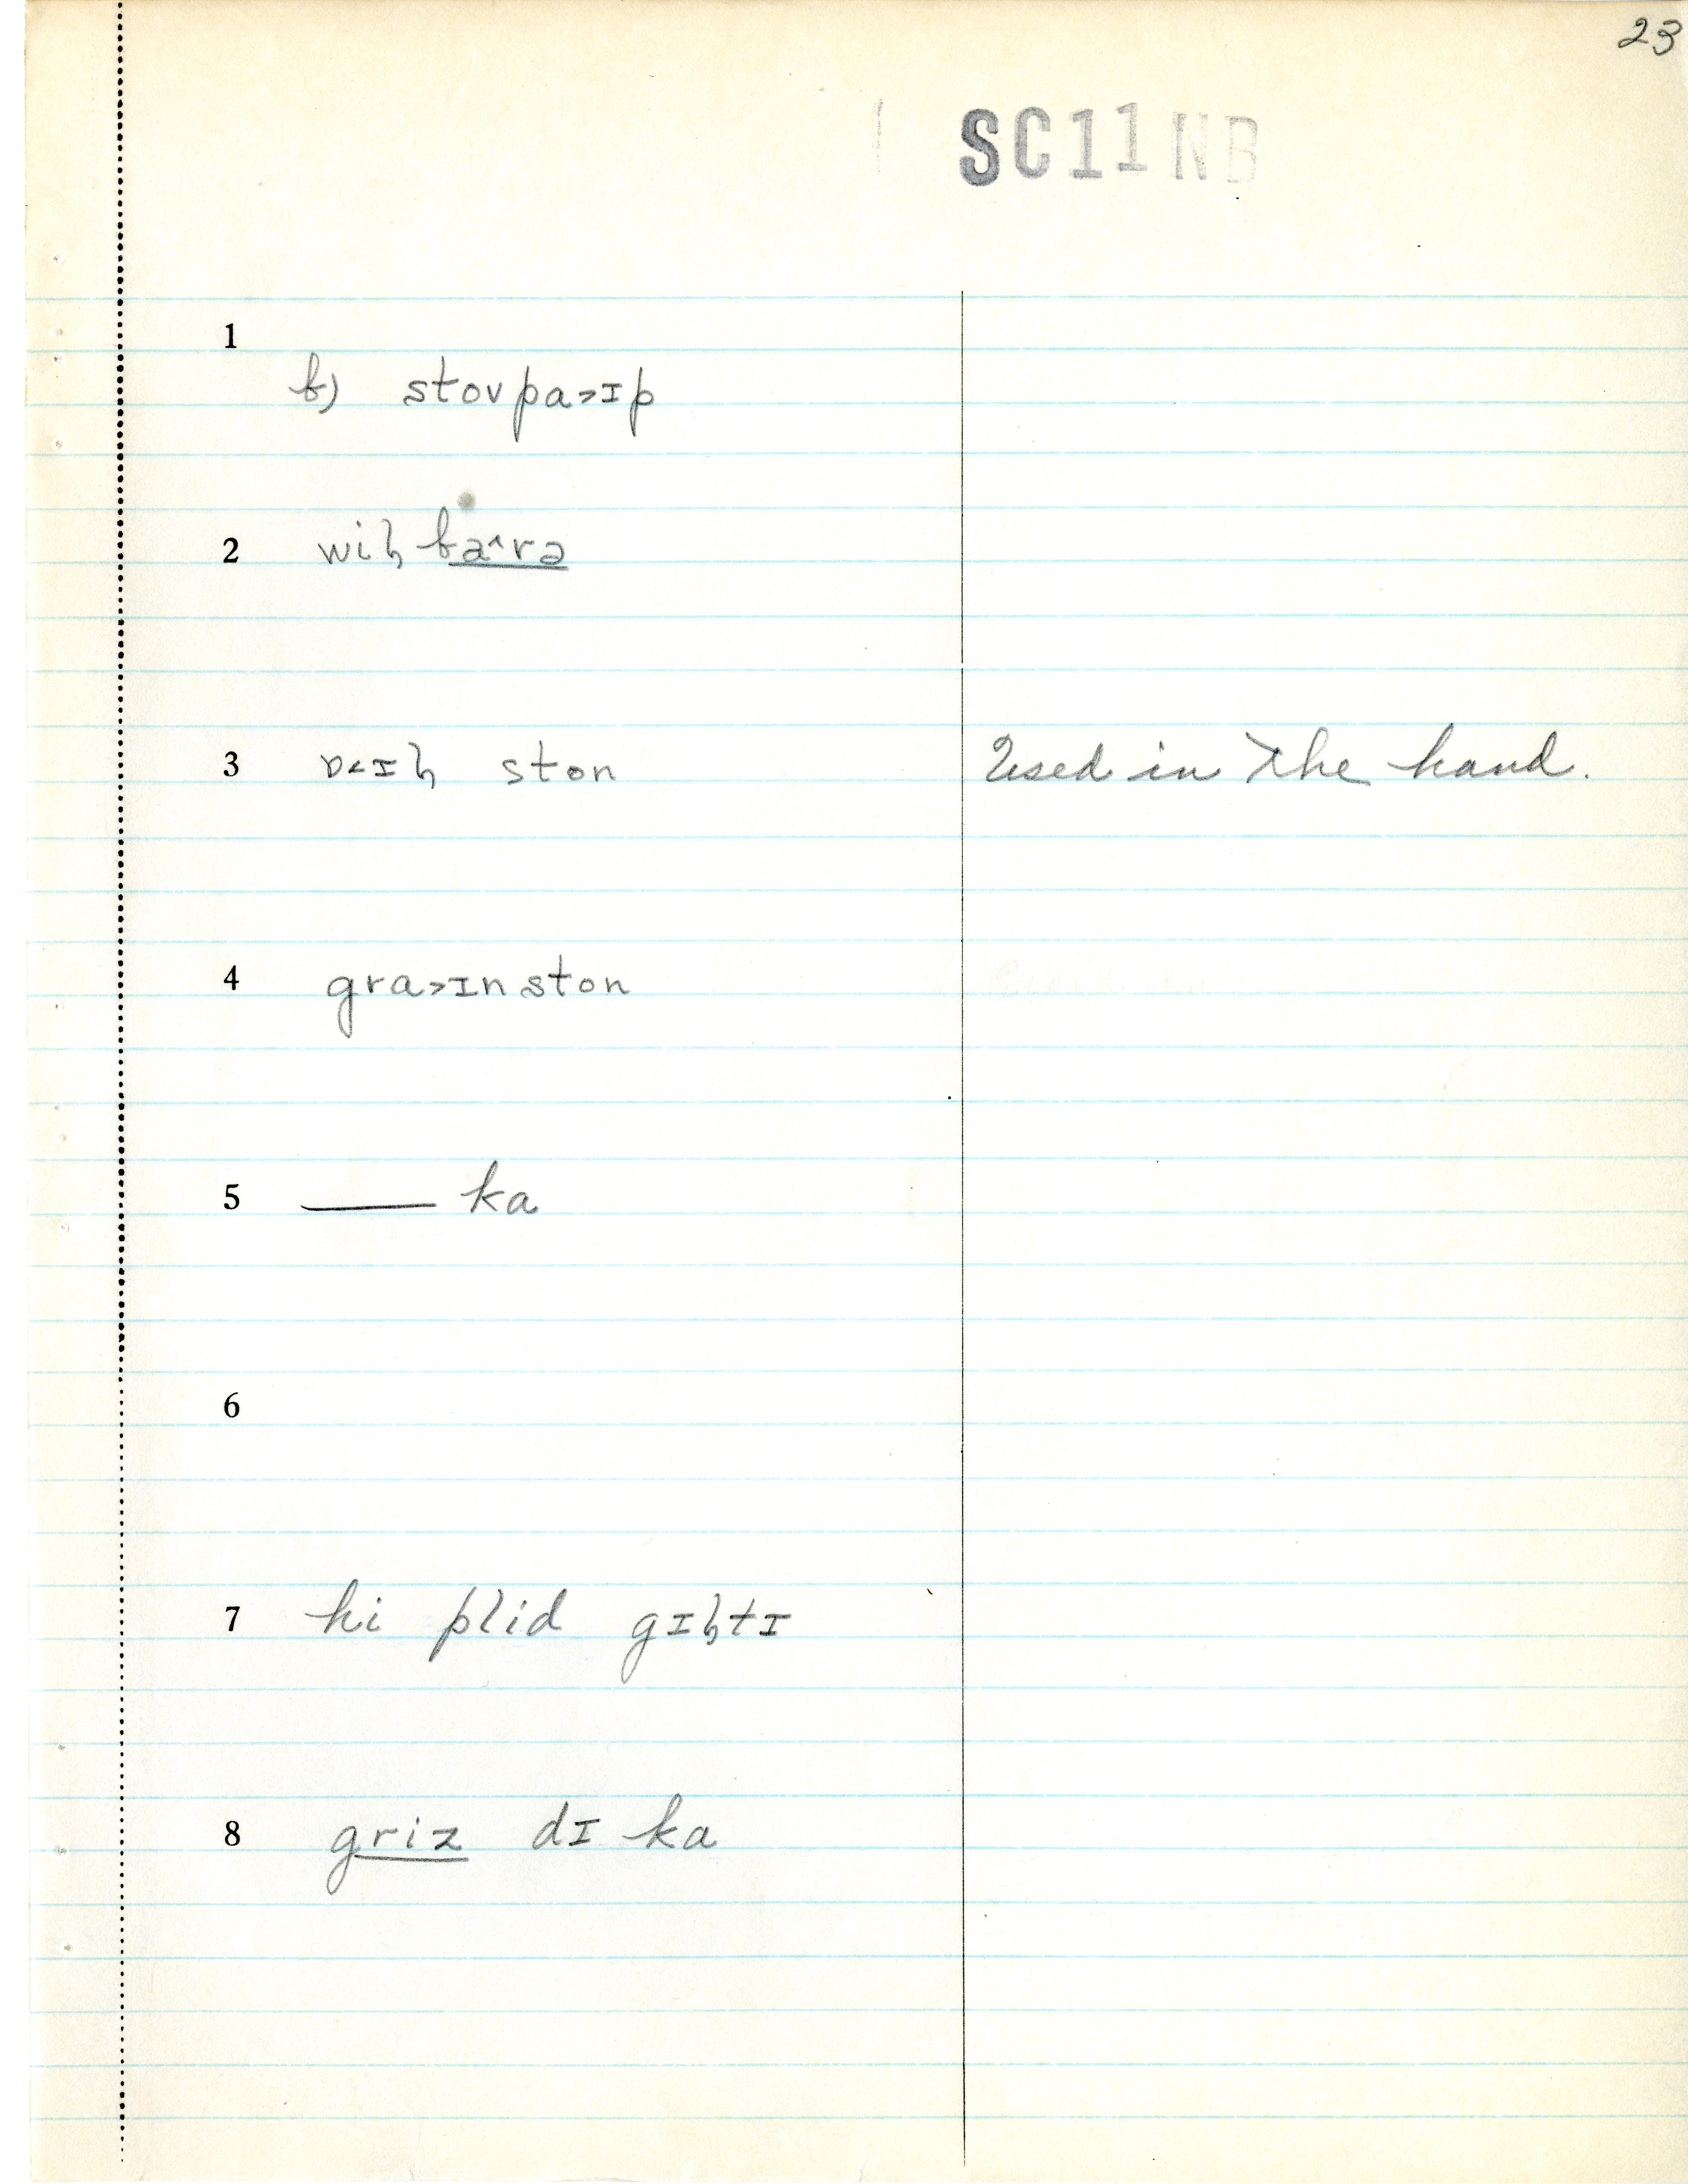 23
SC11NB
1
b) stov pa˃ɪp
2 wiɮ ba˄rə
3 ʋ˂ɪɮ ston Used in the hand.
4 gra˃ɪn ston
5 —— ka
6
7 hi plid gɪɮtɪ
8 griz dɪ ka